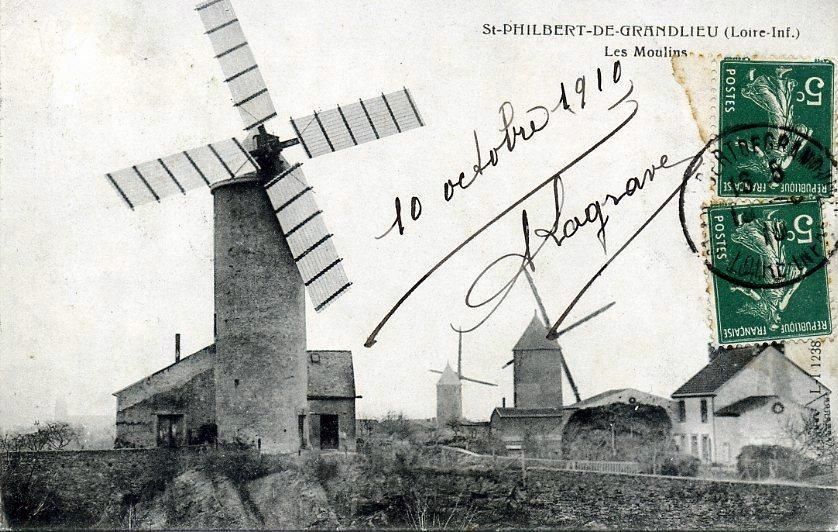 St-PHILBERT-DE-GRANDLIEU (Loire-Inf.)
Les Moulins
10 octobre 1910
Lagrave
5c
POSTES
RÉPUBLIQUE
FRANÇAISE
5c
POSTES
RÉPUBLIQUE
FRANÇAISE
LOIRE-INF
1238